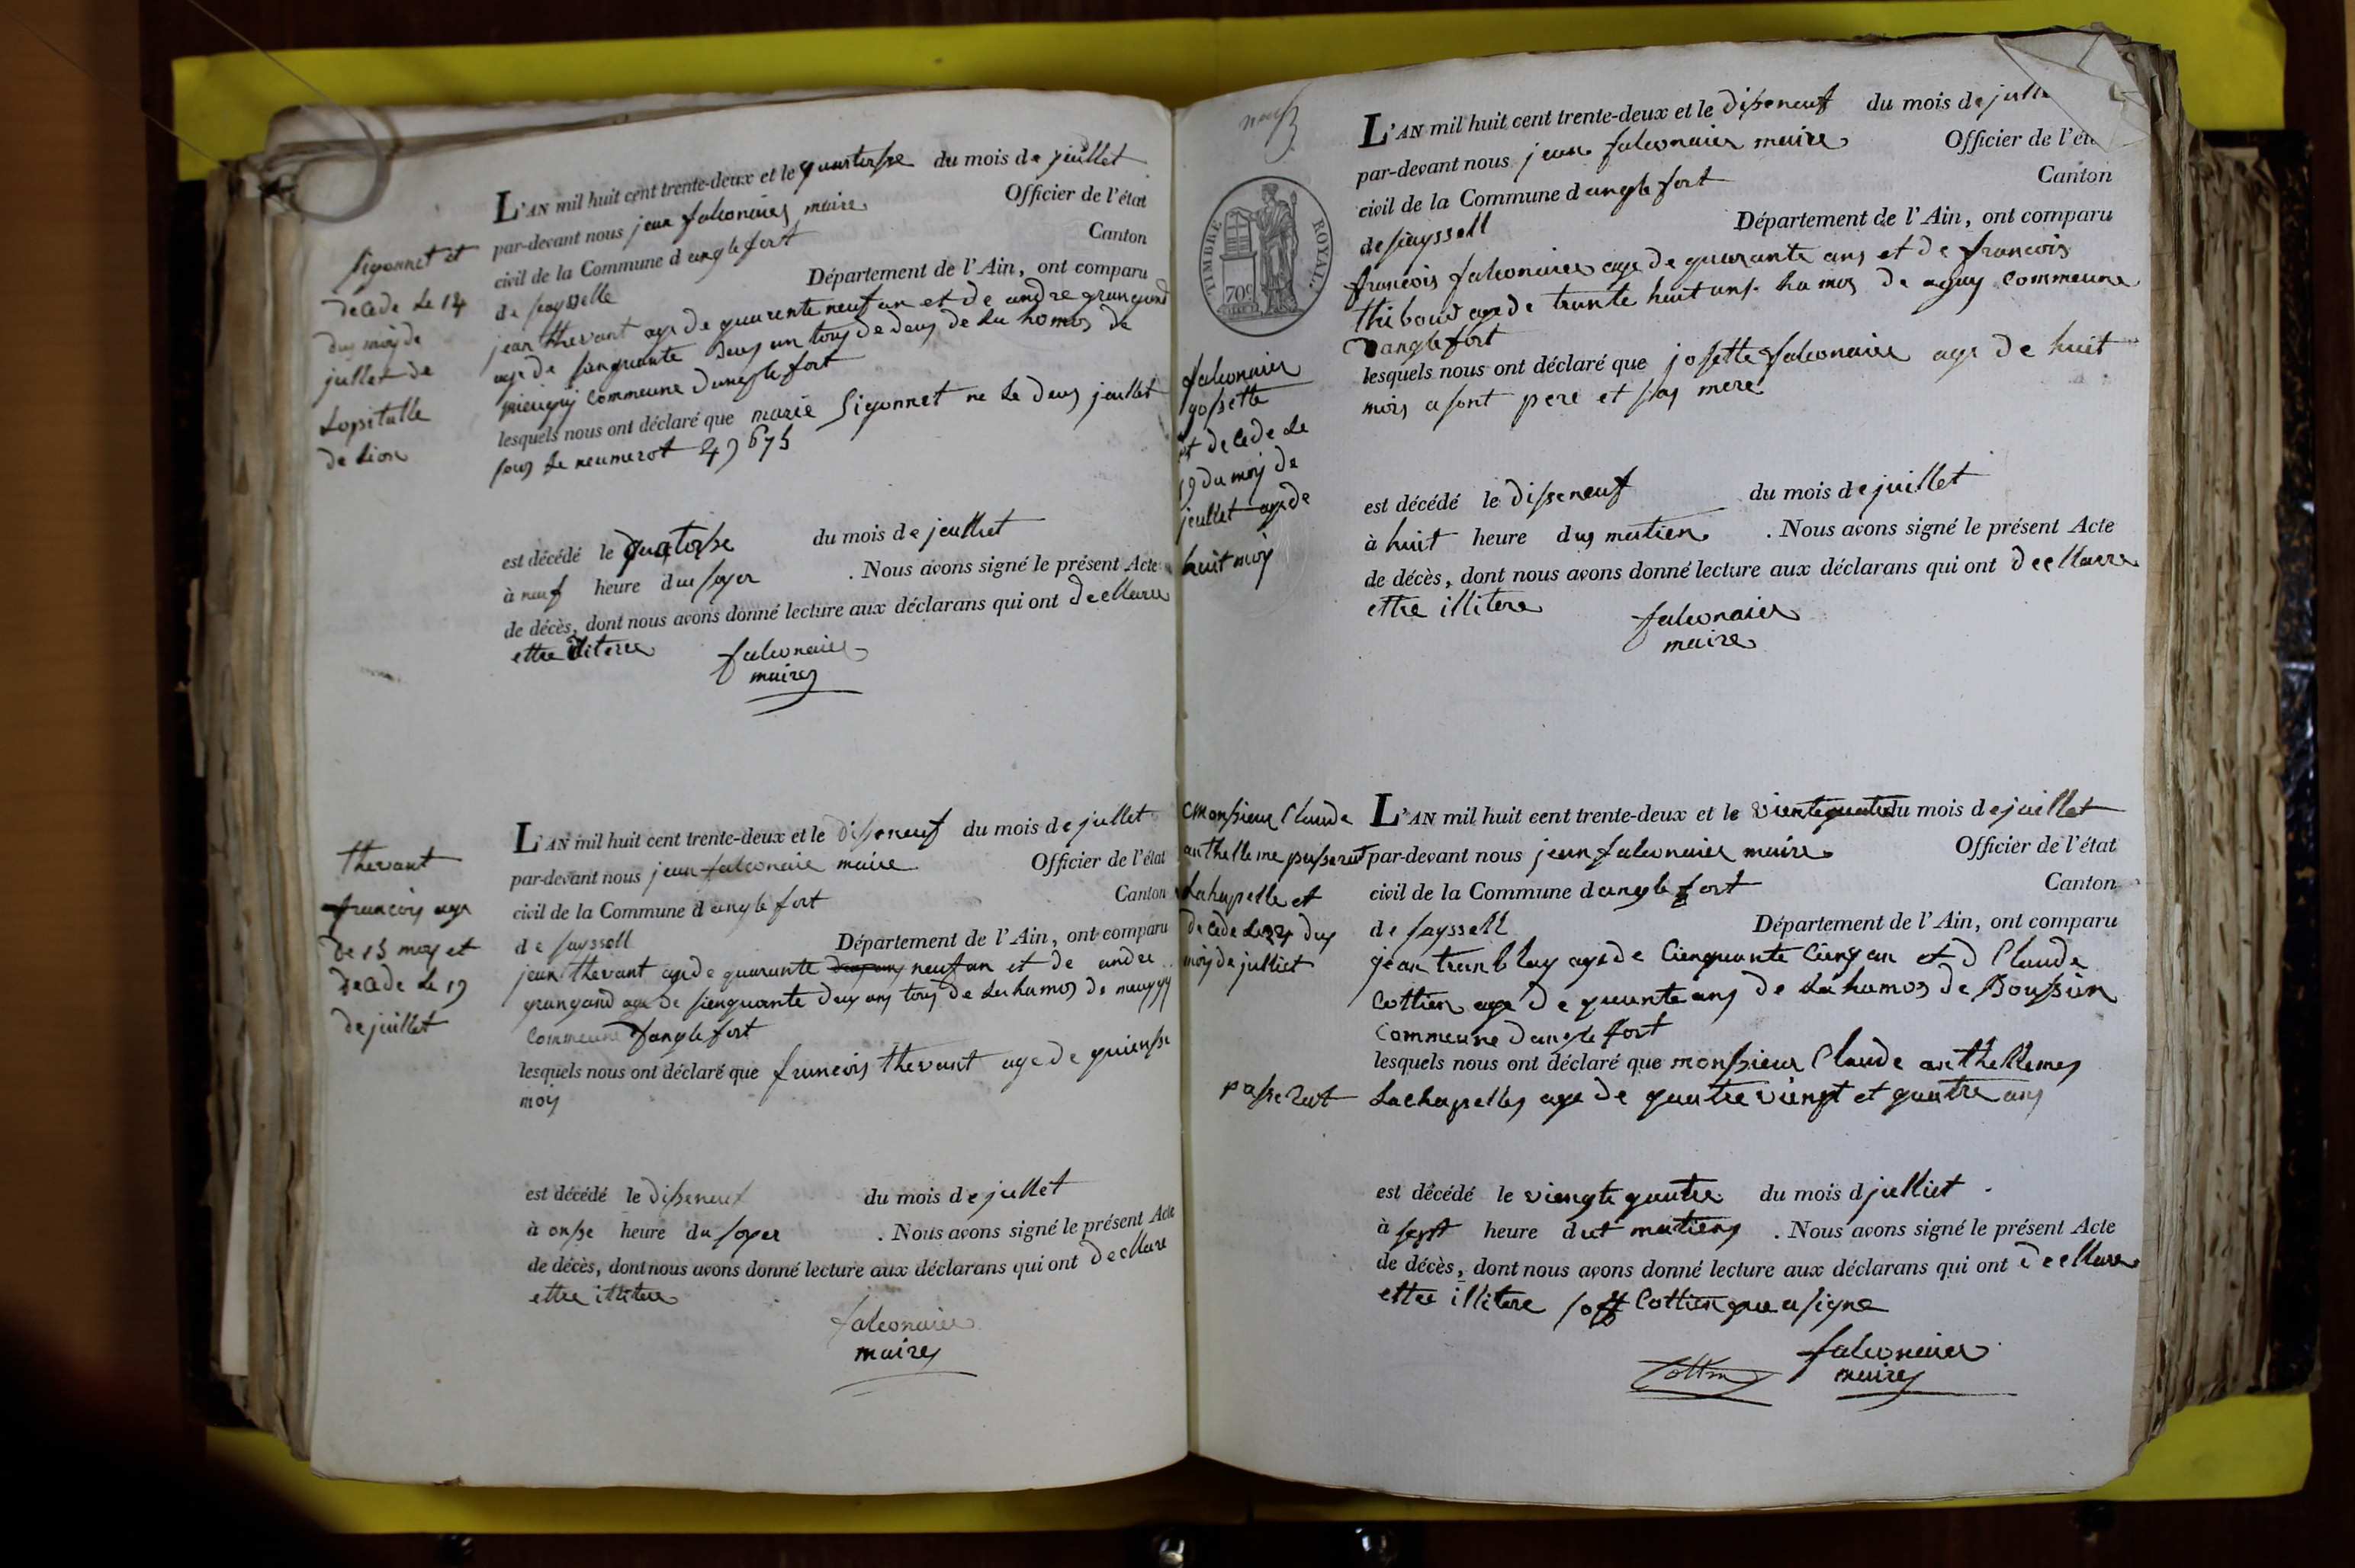 L'AN mil huit cent trente-deux et le quatorse du mois de jeuillet
par-devant nous jean falconaier maire Officier de l'état
civil de la Commune d anglefort Canton
de seysselle Département de l'Ain, ont comparu
jean thevant age de quarente neuf an et de andre grangand
age de sinquante deus an tous de deus de la homos de
commeune danglefort
lesquels nous ont déclaré que marie Sigonnet ne le deus jeullet
sous le neumerot
est décédé le quatorse du mois de jeulliet
à neuf heure du soyer . Nous avons signé le présent Acte
de décès, dont nous avons donné lecture aux déclarans qui ont decllare
ettre iliterre
falconaier
maire
Sigonnet et
decede le 14
dus mois de
jullet de
Lopitalle
de Lion
L'AN mil huit cent trente-deux et le disseneuf du mois de jullet
par-devant nous jean falconaie maire Officier de l'état
civil de la Commune d anglefort Canton
de seyssell Département de l'Ain, ont comparu
jean thevant age de quarante neuf an et de andre
grangand age de sienquante deus ans tous de la hamos de
commeune danglefort
lesquels nous ont déclaré que francois thevant age de quiensse
mois
est décédé le disseneuf du mois de jullet
à onsse heure du soyer . Nous avons signé le présent Acte
de décès, dont nous avons donné lecture aux déclarans qui ont decllare
ettre illitere
falconaier
maires
thevant
francois age
de 15 mois et
decede le 19
de juillet
L'AN mil huit cent trente-deux et le disseneuf du mois de julle
par-devant nous jean falconaier maire Officier de l'éta
civil de la Commune d anglefort Canton
de seyssell Département de l'Ain, ont comparu
francois falconaier age de quarante ans et de francois
thiboud age de trante huit ans ha mos de commeune
danglefort
lesquels nous ont déclaré que josette falconaier age de huit
mois a sont pere et sas mere
est décédé le disseneuf du mois de juillet
à huit heure dus matien . Nous avons signé le présent Acte
de décès, dont nous avons donné lecture aux déclarans qui ont decllarre
ettre illitere
falconaier
maire
TIMBRE ROYAL
70c
falconaier
gosette
et decede le
19 du mois de
jeullet age de
huit mois
L'AN mil huit cent trente-deux et le vientequatre du mois de juillet
par-devant nous jean falconaier maire Officier de l'état
civil de la Commune d anglefort Canton
de seyssell Département de l'Ain, ont comparu
jean tremblay age de Cienquante Cienq an et d Claude
Cottien age de quarante ans de la hamos de Boussin
commeune danglefort
lesquels nous ont déclaré que monssieur Claude anthellemes
passerat Lachapelles age de quatre viengt et quatre ans
est décédé le viengte quatre du mois d julliet
à sept heure dut matiens . Nous avons signé le présent Acte
de décès, dont nous avons donné lecture aux déclarans qui ont decllare
ettre illitere soff Cottien que a signe
Cottin falconaier
maires
Monssieur Claude
anthelleme passerat
Lahapelle et
decede le 24 dus
mois de julliet